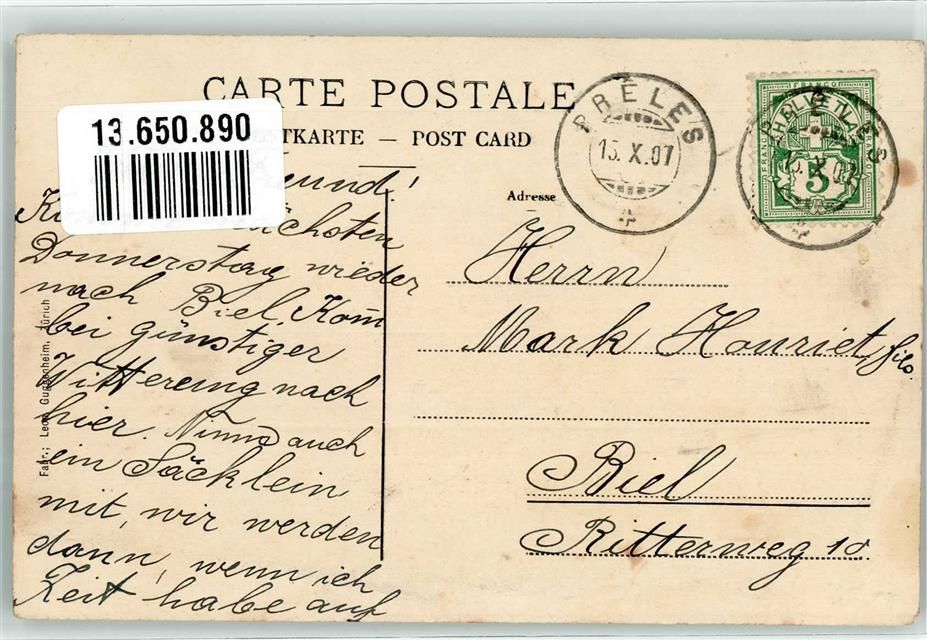 CARTE POSTALE
13.650.890
POSTKARTE — POST CARD
PRÊLES
15.X.07
FRANCO
HELVETIA
5
PRÊLES
15.X.07
Adresse
Herrn
Mark Houriet, filo.
Biel
Ritterweg 10
Fabr.; Leon Guggenheim, Zürich
nächsten
Donnerstag wieder
nach Biel. Kom̄
bei günstiger
Witterung nach
hier. Nimm auch
ein Säcklein
mit, wir werden
dann, wenn ich
Zeit habe auf